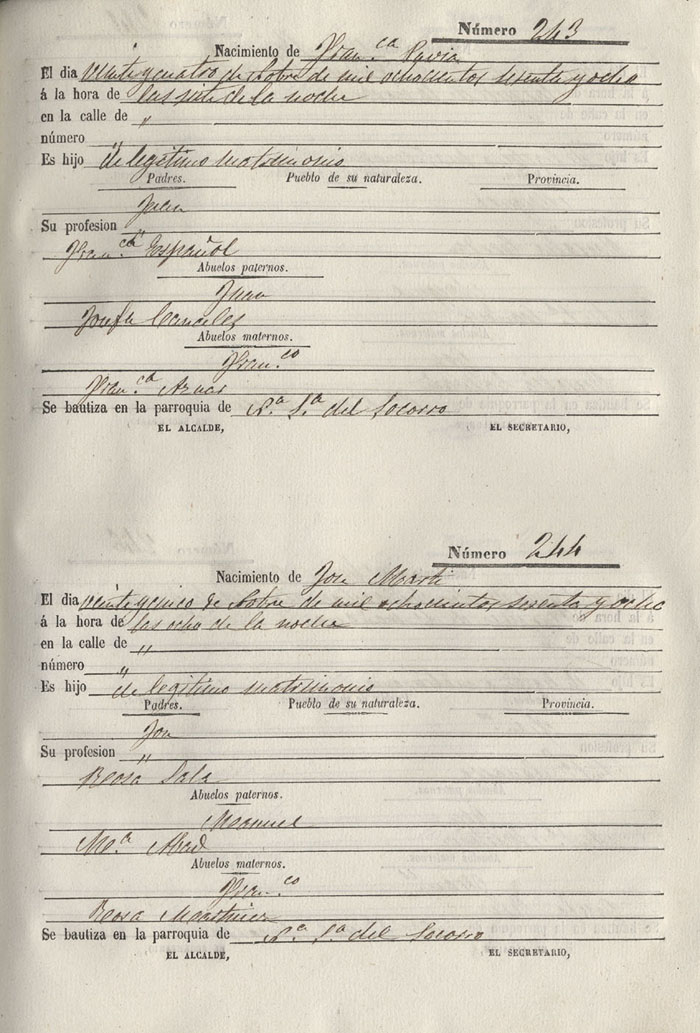 Número 243
Nacimiento de Fran.ca Pavia
El dia veinte y cuatro de Obtre de mil ochocientos sesenta y ocho
á la hora de las siete de la noche
en la calle de "
número "
Es hijo de legítimo matrimonio
Padres. Pueblo de su naturaleza. Provincia.
Juan
Su profesion "
Fran.ca Español
Abuelos paternos.
Juan
Josefa Canales
Abuelos maternos.
Fran.co
Fran.ca Aznar
Se bautiza en la parroquia de N.a S.a del Socorro
EL ALCALDE, EL SECRETARIO,
Número 244
Nacimiento de Jose Marti
El dia veinte y cinco de Obtre de mil ochocientos sesenta y ocho
á la hora de las ocho de la noche
en la calle de "
número "
Es hijo de legitimo matrimonio
Padres. Pueblo de su naturaleza. Provincia.
Jose
Su profesion "
Rosa Sala
Abuelos paternos.
Manuel
M.a Abad
Abuelos maternos.
Fran.co
Rosa Martinez
Se bautiza en la parroquia de N.a S.a del Socorro
EL ALCALDE, EL SECRETARIO,